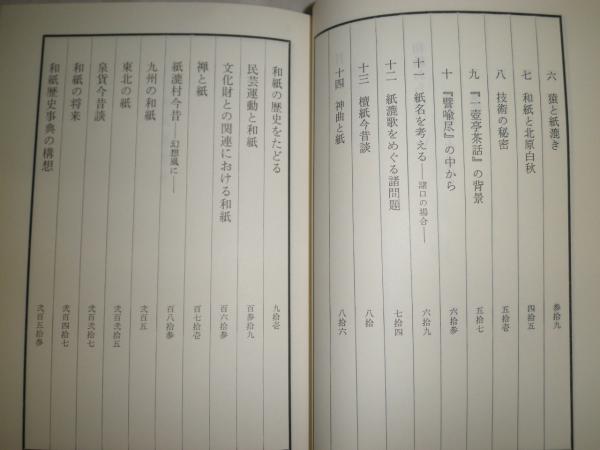 六 猿と紙漉き 参拾九
七 和紙と北原白秋 四拾五
八 技術の秘密 五拾壱
九 『一壺亭茶話』の背景 五拾七
十 『譬喩尽』の中から 六拾参
十一 紙名を考える——諸口の場合—— 六拾九
十二 紙漉歌をめぐる諸問題 七拾四
十三 檀紙今昔談 八拾
十四 神曲と紙 八拾六
和紙の歴史をたどる 九拾壱
民芸運動と和紙 百参拾九
文化財との関連における和紙 百六拾参
禅と紙 百七拾壱
紙漉村今昔——幻想風に—— 百八拾参
九州の和紙 弐百五
東北の紙 弐百弐拾五
泉貨今昔談 弐百弐拾七
和紙の将来 弐百四拾七
和紙歴史事典の構想 弐百五拾参